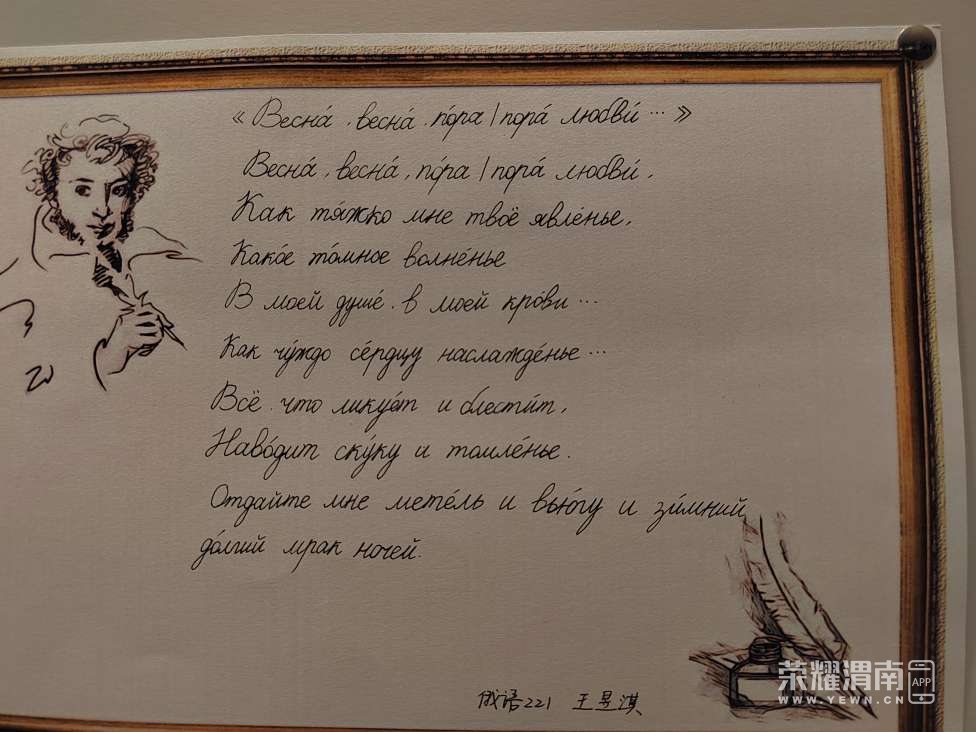 《Весна́, весна́, по́ра/пора́ любви́…》
Весна́, весна́, по́ра/пора́ любви́,
Как тя́жко мне твоё явле́нье,
Како́е то́мное волне́нье
В моей душе́, в моей кро́ви…
Как чу́ждо се́рдцу наслажде́нье…
Всё, что лику́ет и блести́т,
Наво́дит ску́ку и томле́нье.
Отдайте мне мете́ль и вью́гу и зи́мний
до́лгий мрак ночей.
俄语221 王昱淇
荣耀渭南 APP
WWW.YEWN.CN